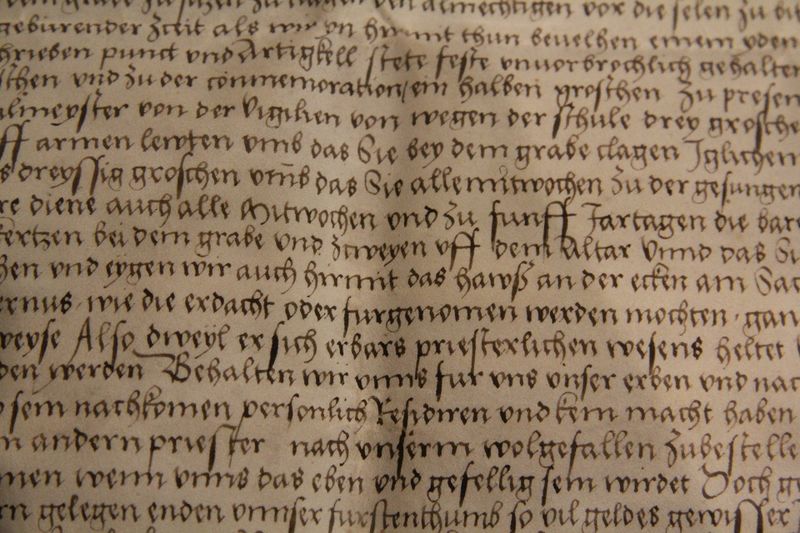 almechtigen vor die selen zu
geburender Zceit als wir yn hirmit thun bevelhen einem yden
hrieben punct und Artigkell stete feste unvorbrochlich gehalten
schen und zu der commemoration ein halben groschen Zu presen
lmeyster von der Vigilien von wegen der schule drey grosche
ff armen lewten umb das Sie bey dem grabe clagen Iglichem
s dreyssig groschen umb das Sie alle mitwochen zu der gesungen
re diene auch alle Mitwochen und zu funff Jartagen die bare
kertzen bei dem grabe und zcweyen uff dem Altar Unnd das Si
hen und eygen wir auch hirmit das hawß an der ecken am Sac
ernus wie die erdacht oder furgenomen werden mochten gan
weyse Also dweyl er sich erbars priesterlichen wesens heltet
den werden Behalten wir unns fur uns unser erben und nac
sein nachkomen personlich Residiren und kein macht haben
n andern priester nach unserm wolgefallen zubestelle
men wenn unns das eben und gefellig sein wirdet Doch ge
rn gelegen enden unnser furstenthumb so vil geldes gewisser